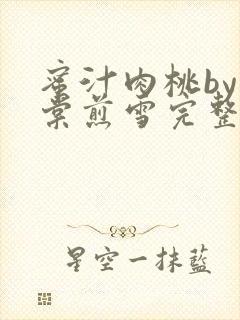 蜜汁肉桃by
棠煎雪完整
星空一抹蓝